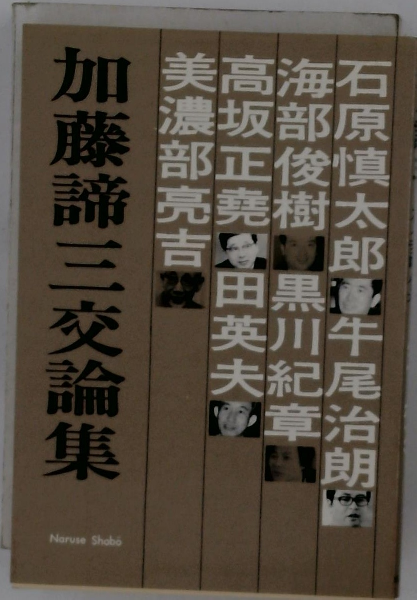 石原慎太郎 牛尾治朗
海部俊樹 黒川紀章
高坂正堯 田英夫
美濃部亮吉
加藤諦三交論集
Naruse Shobō